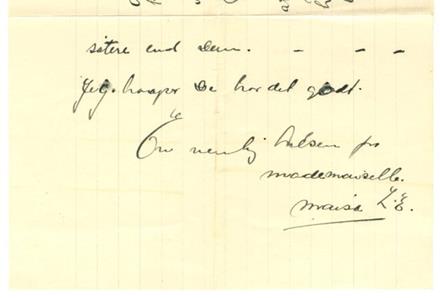 sitere end Dem. - - -
Jeg haaper De har det godt.
En venlig hilsen fra
mademoiselle.
Maisa L.E.